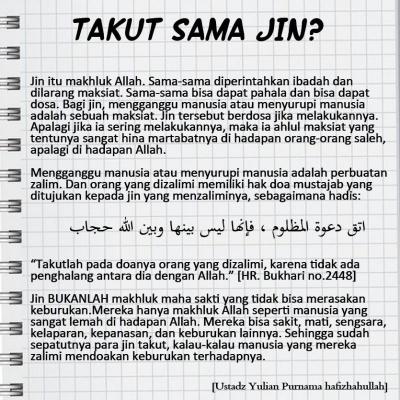 TAKUT SAMA JIN?
Jin itu makhluk Allah. Sama-sama diperintahkan ibadah dan
dilarang maksiat. Sama-sama bisa dapat pahala dan bisa dapat
dosa. Bagi jin, mengganggu manusia atau menyurupi manusia
adalah sebuah maksiat. Jin tersebut berdosa jika melakukannya.
Apalagi jika ia sering melakukannya, maka ia ahlul maksiat yang
tentunya sangat hina martabatnya di hadapan orang-orang saleh,
apalagi di hadapan Allah.
Mengganggu manusia atau menyurupi manusia adalah perbuatan
zalim. Dan orang yang dizalimi memiliki hak doa mustajab yang
ditujukan kepada jin yang menzaliminya, sebagaimana hadis:
اتق دعوة المظلوم ، فإنها ليس بينها وبين الله حجاب
“Takutlah pada doanya orang yang dizalimi, karena tidak ada
penghalang antara dia dengan Allah.” [HR. Bukhari no.2448]
Jin BUKANLAH makhluk maha sakti yang tidak bisa merasakan
keburukan.Mereka hanya makhluk Allah seperti manusia yang
sangat lemah di hadapan Allah. Mereka bisa sakit, mati, sengsara,
kelaparan, kepanasan, dan keburukan lainnya. Sehingga sudah
sepatutnya para jin takut, kalau-kalau manusia yang mereka
zalimi mendoakan keburukan terhadapnya.
[Ustadz Yulian Purnama hafizhahullah]